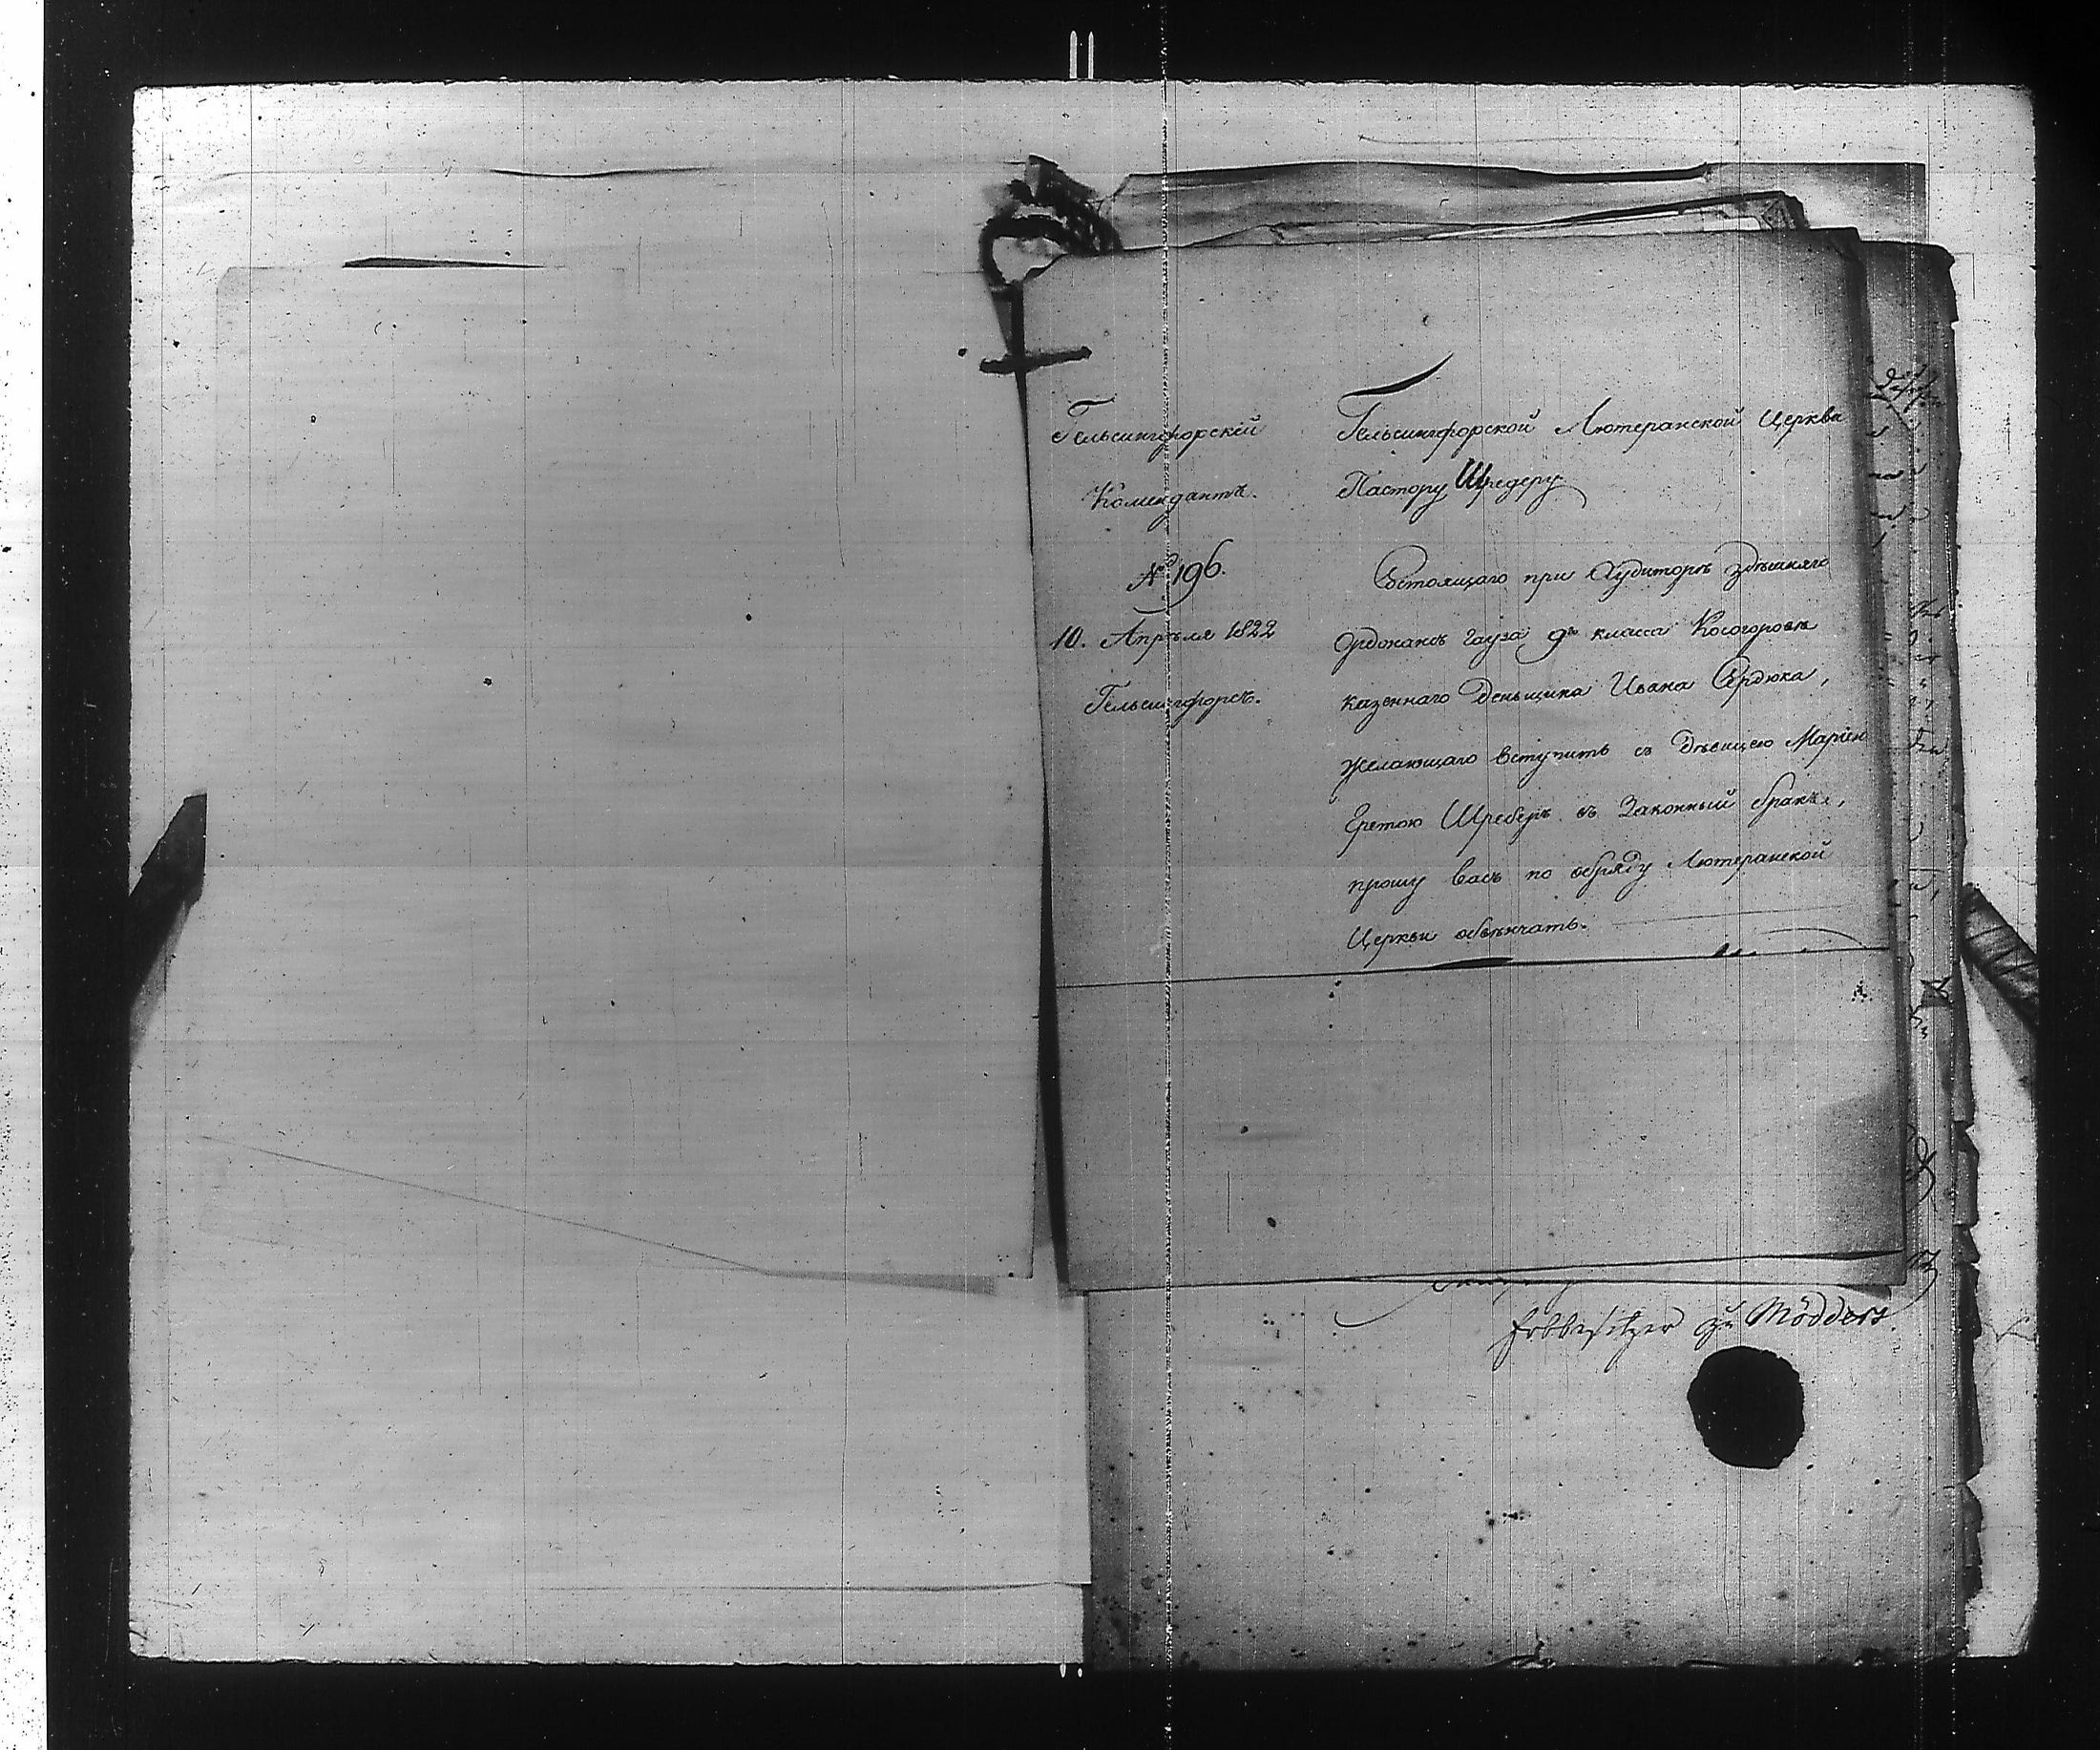 Гельсингфорскій
Комендантъ.
№ 196.
10. Апрѣля 1822
Гельсингфорсъ.
Гельсингфорской Лютеранской Церкви
Пастору Шредеру
Состоящаго при Аудиторѣ здѣшняго
Ордонансъ Гауза 9го класса Косогоровѣ
казеннаго Деньщика Ивана Сердюка,
желающаго вступить съ Дѣвицею Маріею
Гретою Шреберъ въ Законный бракъ,
прошу васъ по обряду Лютеранской
Церкви обвѣнчать.
Erbbesitzer zu Mödders.